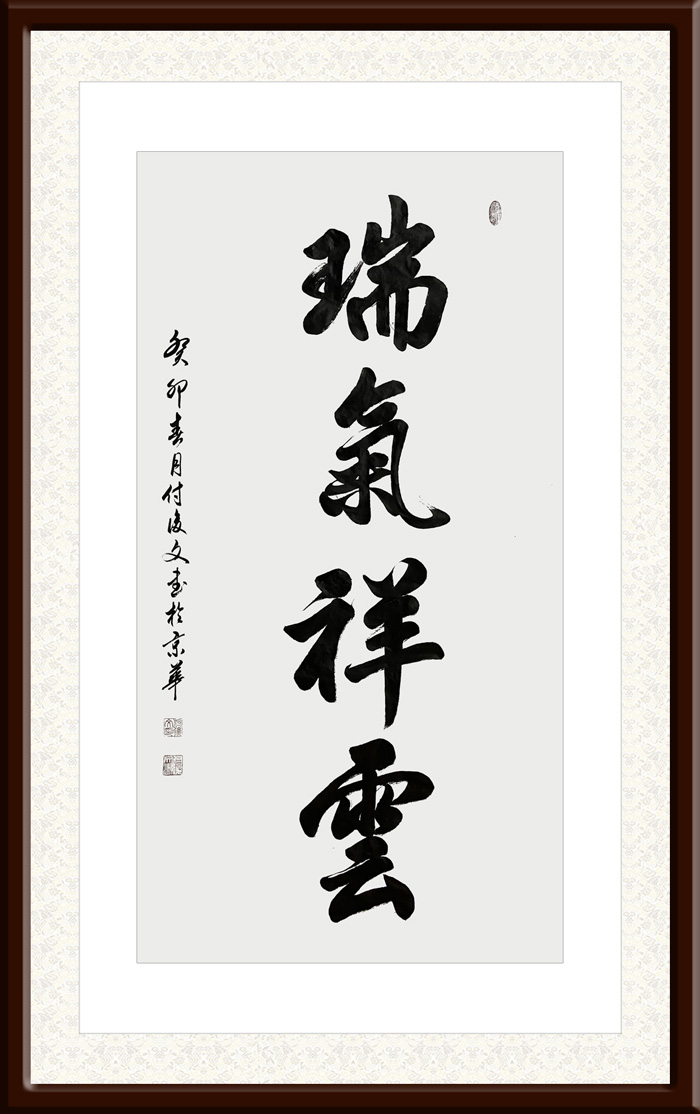 瑞氣祥雲
癸卯春月付後文書於京華